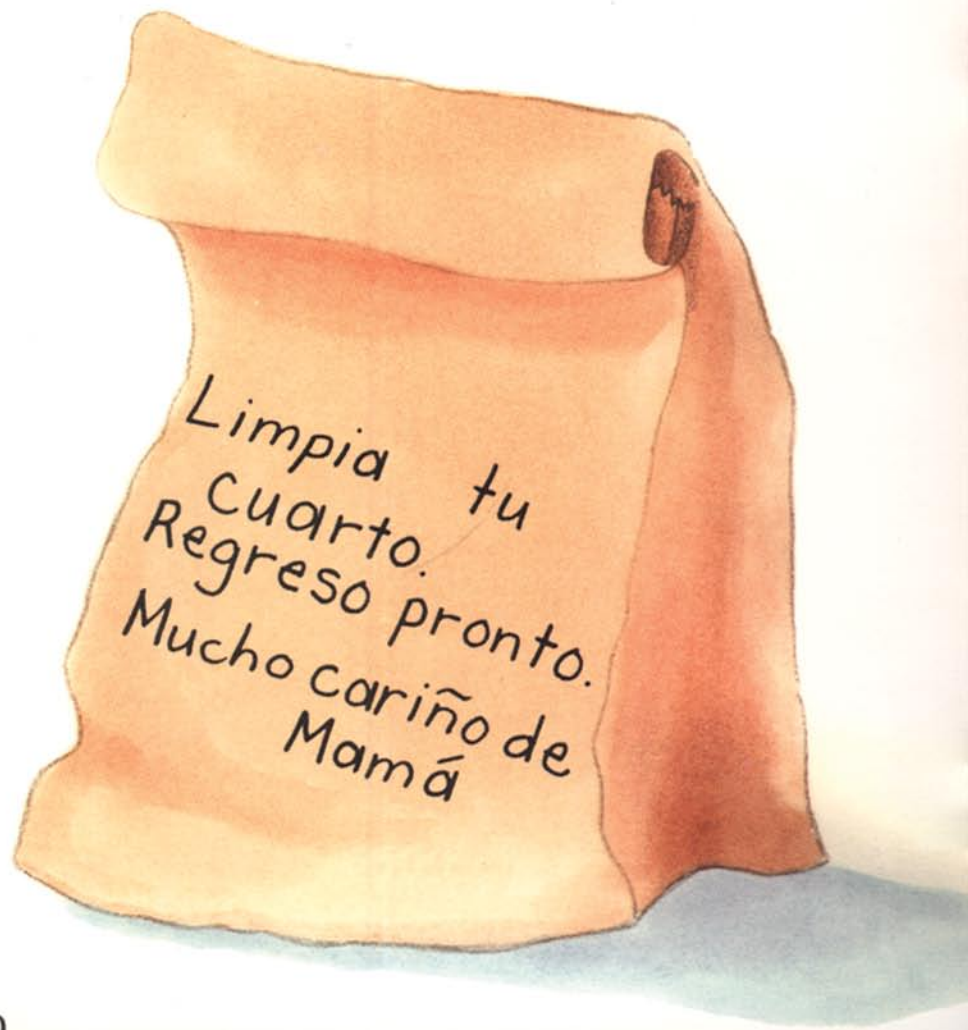 Limpia tu
cuarto.
Regreso pronto.
Mucho cariño de
Mamá